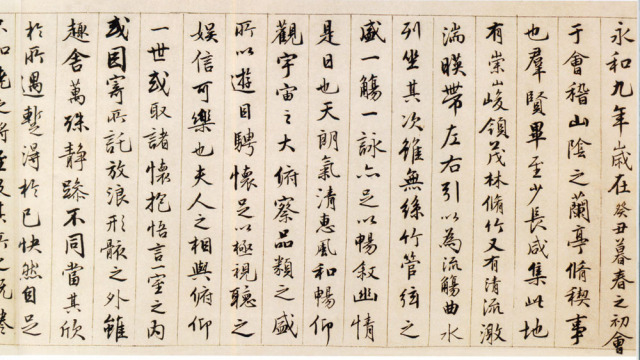 永和九年歲在癸丑暮春之初會
于會稽山陰之蘭亭脩稧事
也羣賢畢至少長咸集此地
有崇山峻領茂林脩竹又有清流激
湍暎帶左右引以為流觴曲水
列坐其次雖無絲竹管弦之
盛一觴一詠亦足以暢敘幽情
是日也天朗氣清惠風和暢仰
觀宇宙之大俯察品類之盛
所以遊目騁懷足以極視聽之
娛信可樂也夫人之相與俯仰
一世或取諸懷抱悟言一室之內
或因寄所託放浪形骸之外雖
趣舍萬殊靜躁不同當其欣
於所遇蹔得於己快然自足